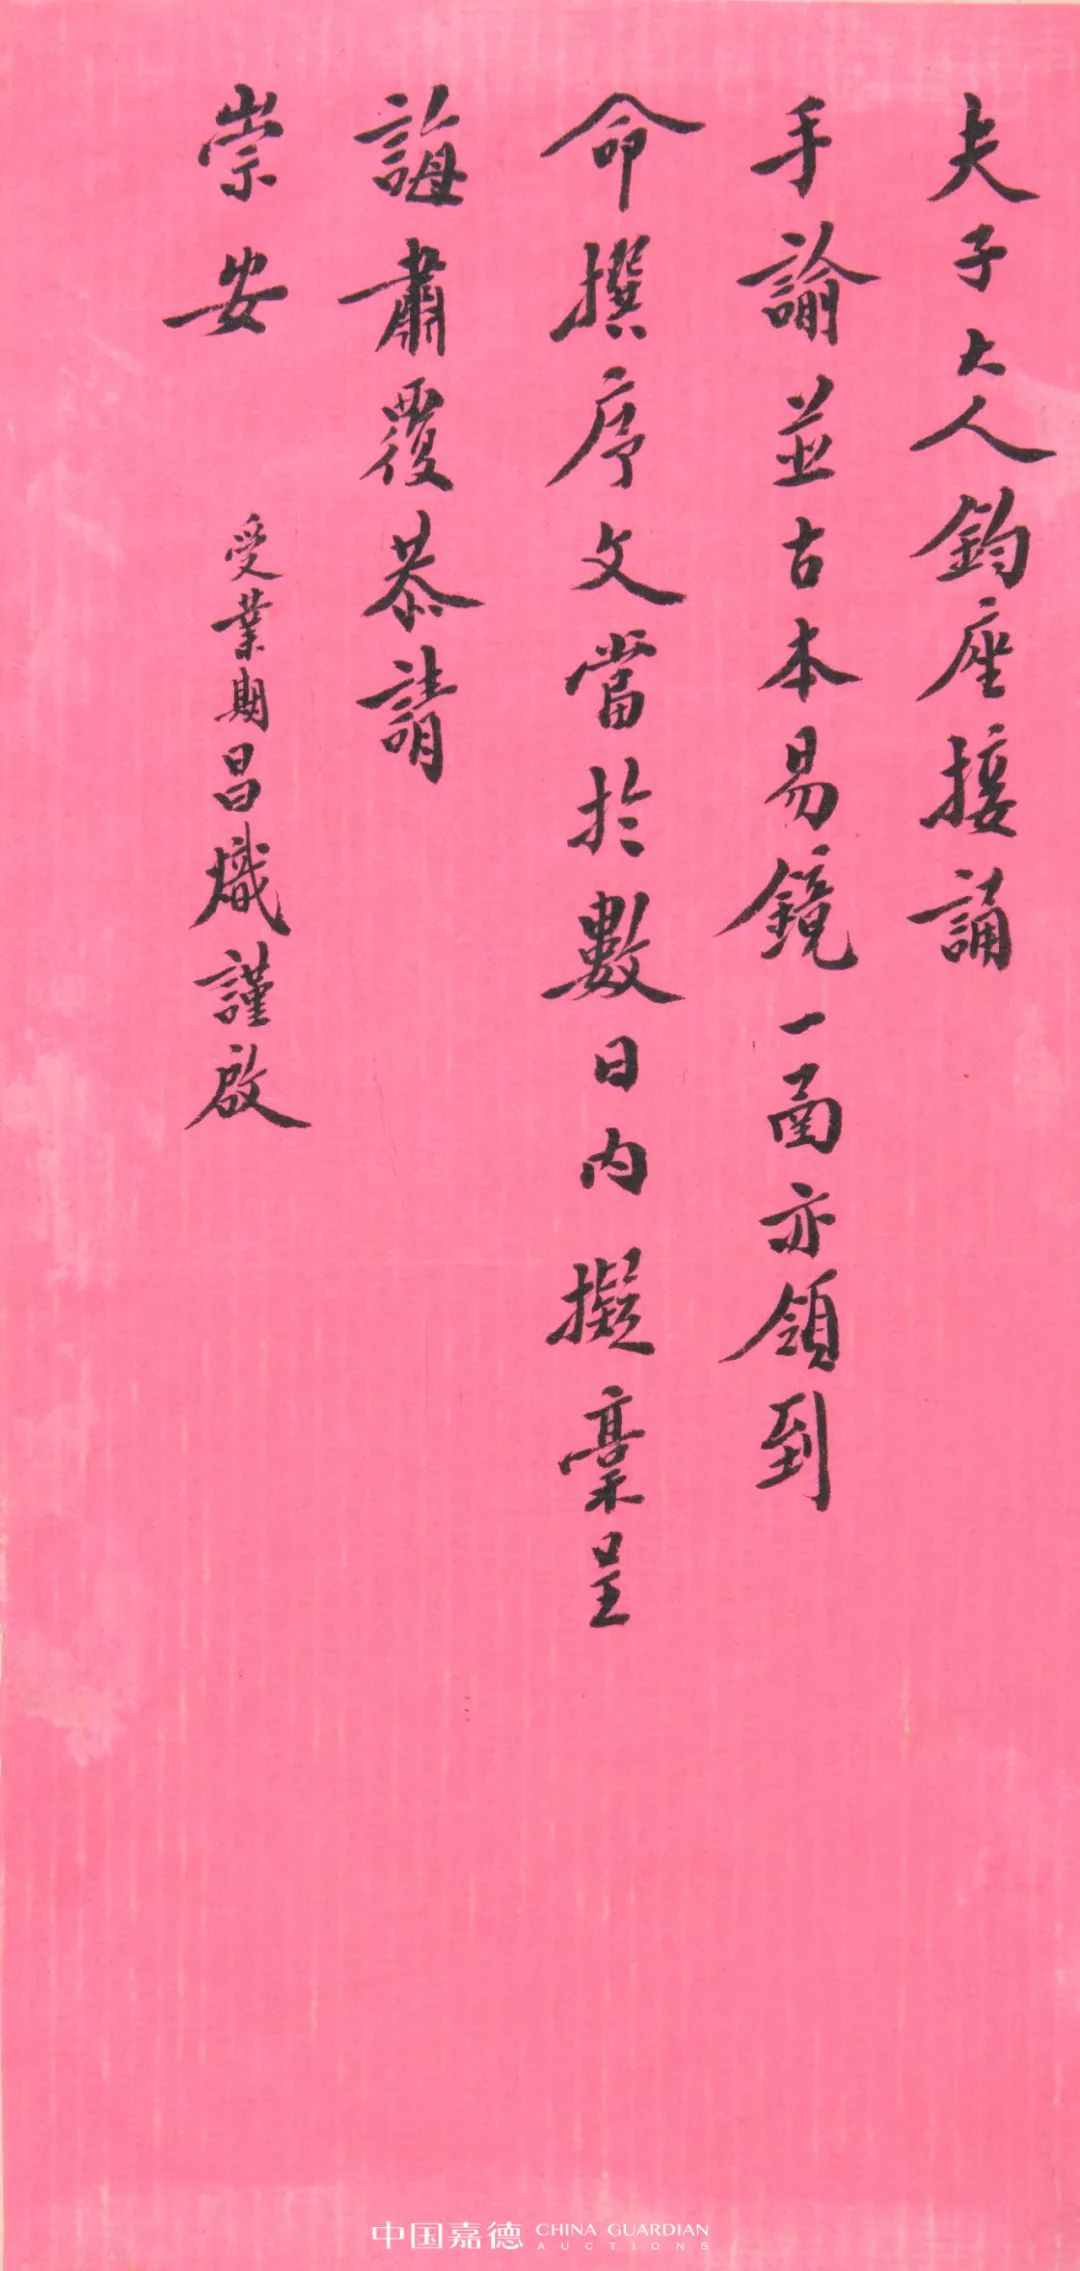 夫子大人鈞座接誦
手諭並古本易鏡一函亦領到
命撰序文當於數日内擬稾呈
誨肅覆恭請
崇安
受業期昌熾謹啟
中国嘉德 CHINA GUARDIAN
AUCTIONS